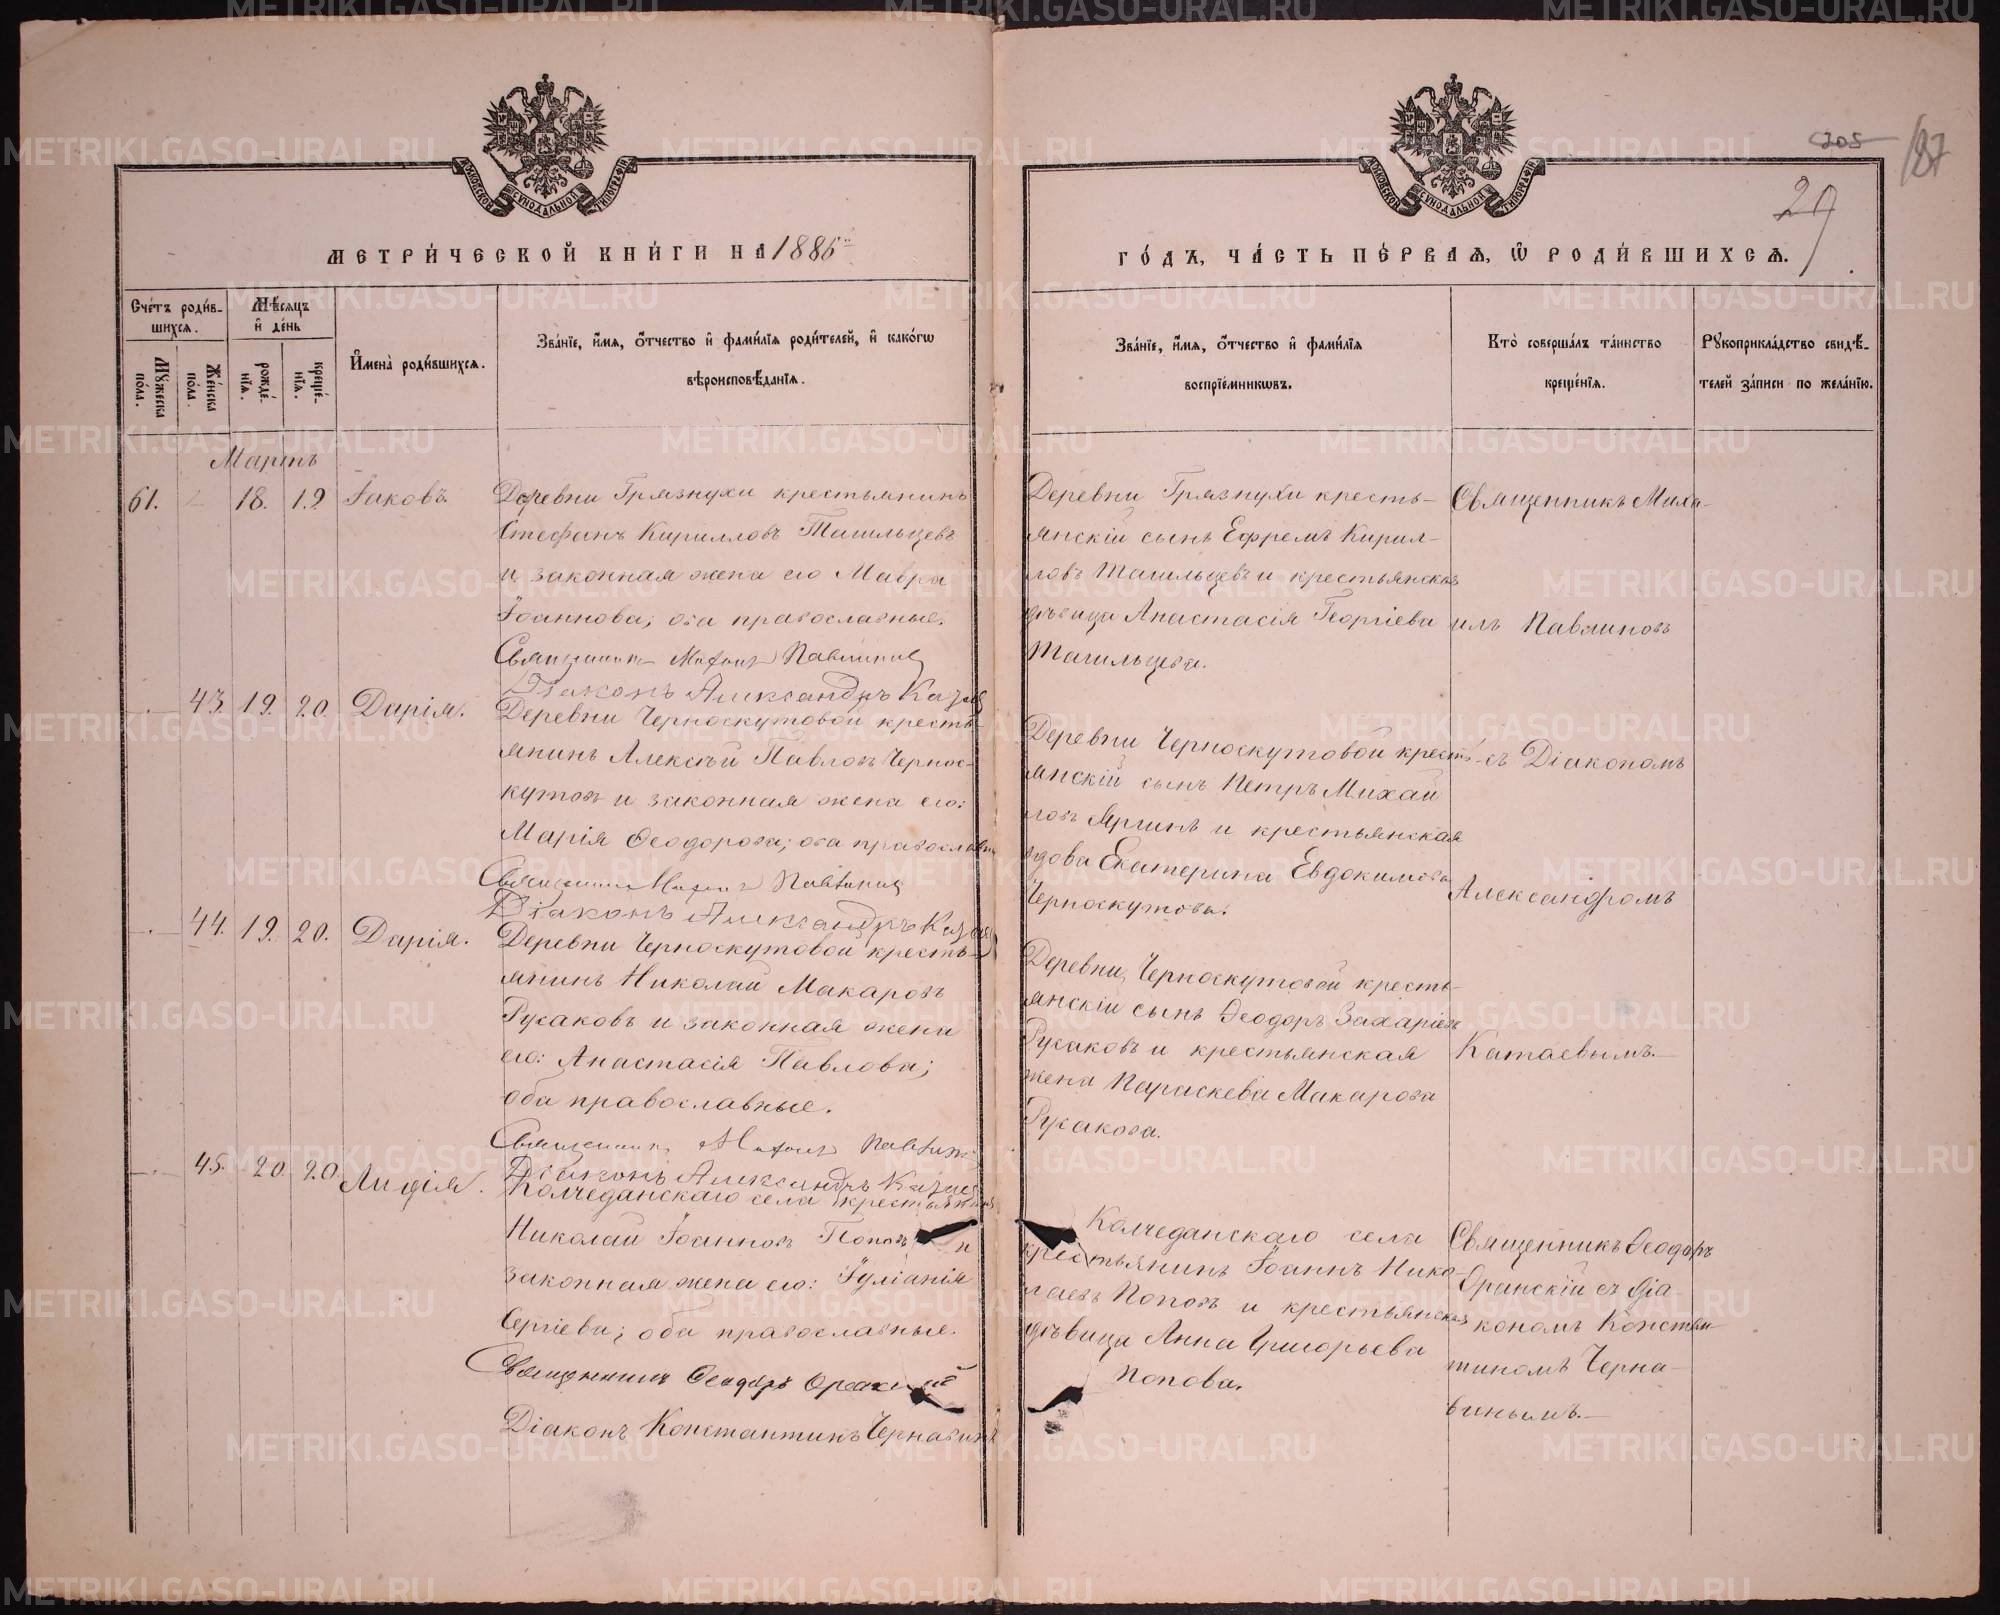 МЕТРИ́ЧЕСКОЙ КНИ́ГИ НА 1886й
Сче́тъ роди́в-
шихсѧ.
Мѣ́сѧцъ
и де́нь
Му́жеска
по́ла.
Же́нска
по́ла.
рожде́-
нїѧ.
креще́-
нїѧ.
И҆мена̀ роди́вшихсѧ.
Зва́нїе, и҆́мѧ, ѻ҆́тчество и҆ фами́лїѧ роди́телей, и҆ како́гѡ
вѣроисповѣ́данїѧ.
Мартъ
61. 18. 19 Іаковъ.
Деревни Грязнухи крестьянинъ
Стефанъ Кирилловъ Тагильцевъ
и законная жена его Мавра
Іоаннова; оба православные.
Священникъ Михаилъ Павлиновъ
Діаконъ Александръ Катаев
43. 19. 20. Дарія.
Деревни Черноскутовой кресть-
янинъ Алексѣй Павловъ Чернос-
кутовъ и законная жена его:
Марія Ѳеодорова; оба православны
Священникъ Михаилъ Павлинов
Діаконъ Александръ Катаев
44. 19. 20. Дарія.
Деревни Черноскутовой кресть-
янинъ Николай Макаровъ
Русаковъ и законная жена
его: Анастасія Павлова;
оба православные.
Священникъ Михаилъ Павлинов
Діаконъ Александръ Катаев
45. 20. 20. Лидія.
Колчеданскаго села крестьянинъ
Николай Іоанновъ Поповъ и
законная жена его: Іуліанія
Сергіева; оба православные.
Священникъ Ѳеодоръ Оранскій
Діаконъ Константинъ Чернавинъ
205
187
29
ГО́ДЪ, ЧА́СТЬ ПЕ́РВАѦ, Ѡ҆ РОДИ́ВШИХСѦ.
Зва́нїе, и҆́мѧ, ѻ҆́тчество и҆ фами́лїѧ
воспрїе́мникѡвъ.
Кто̀ соверша́лъ та́инство
креще́нїѧ.
Рꙋкоприкла́дство свидѣ́-
телей за́писи по жела́нїю.
Деревни Грязнухи кресть-
янскій сынъ Ефремъ Кирил-
ловъ Тагильцевъ и крестьянская
дѣвица Анастасія Георгіева
Тагильцева.
Деревни Черноскутовой кресть-
янскій сынъ Петръ Михай
ловъ Яринъ и крестьянская
вдова Екатерина Евдокимова
Черноскутова.
Деревни Черноскутовой кресть-
янскій сынъ Ѳеодоръ Захаріевъ
Русаковъ и крестьянская
жена Параскева Макарова
Русакова.
Колчеданскаго села
крестьянинъ Іоаннъ Нико-
лаевъ Поповъ и крестьянская
дѣвица Анна Григорьева
Попова.
Священникъ Миха-
илъ Павлиновъ
съ Діакономъ
Александромъ
Катаевымъ.
Священникъ Ѳеодоръ
Оранскій съ діа-
кономъ Констан
тиномъ Черна-
винымъ.